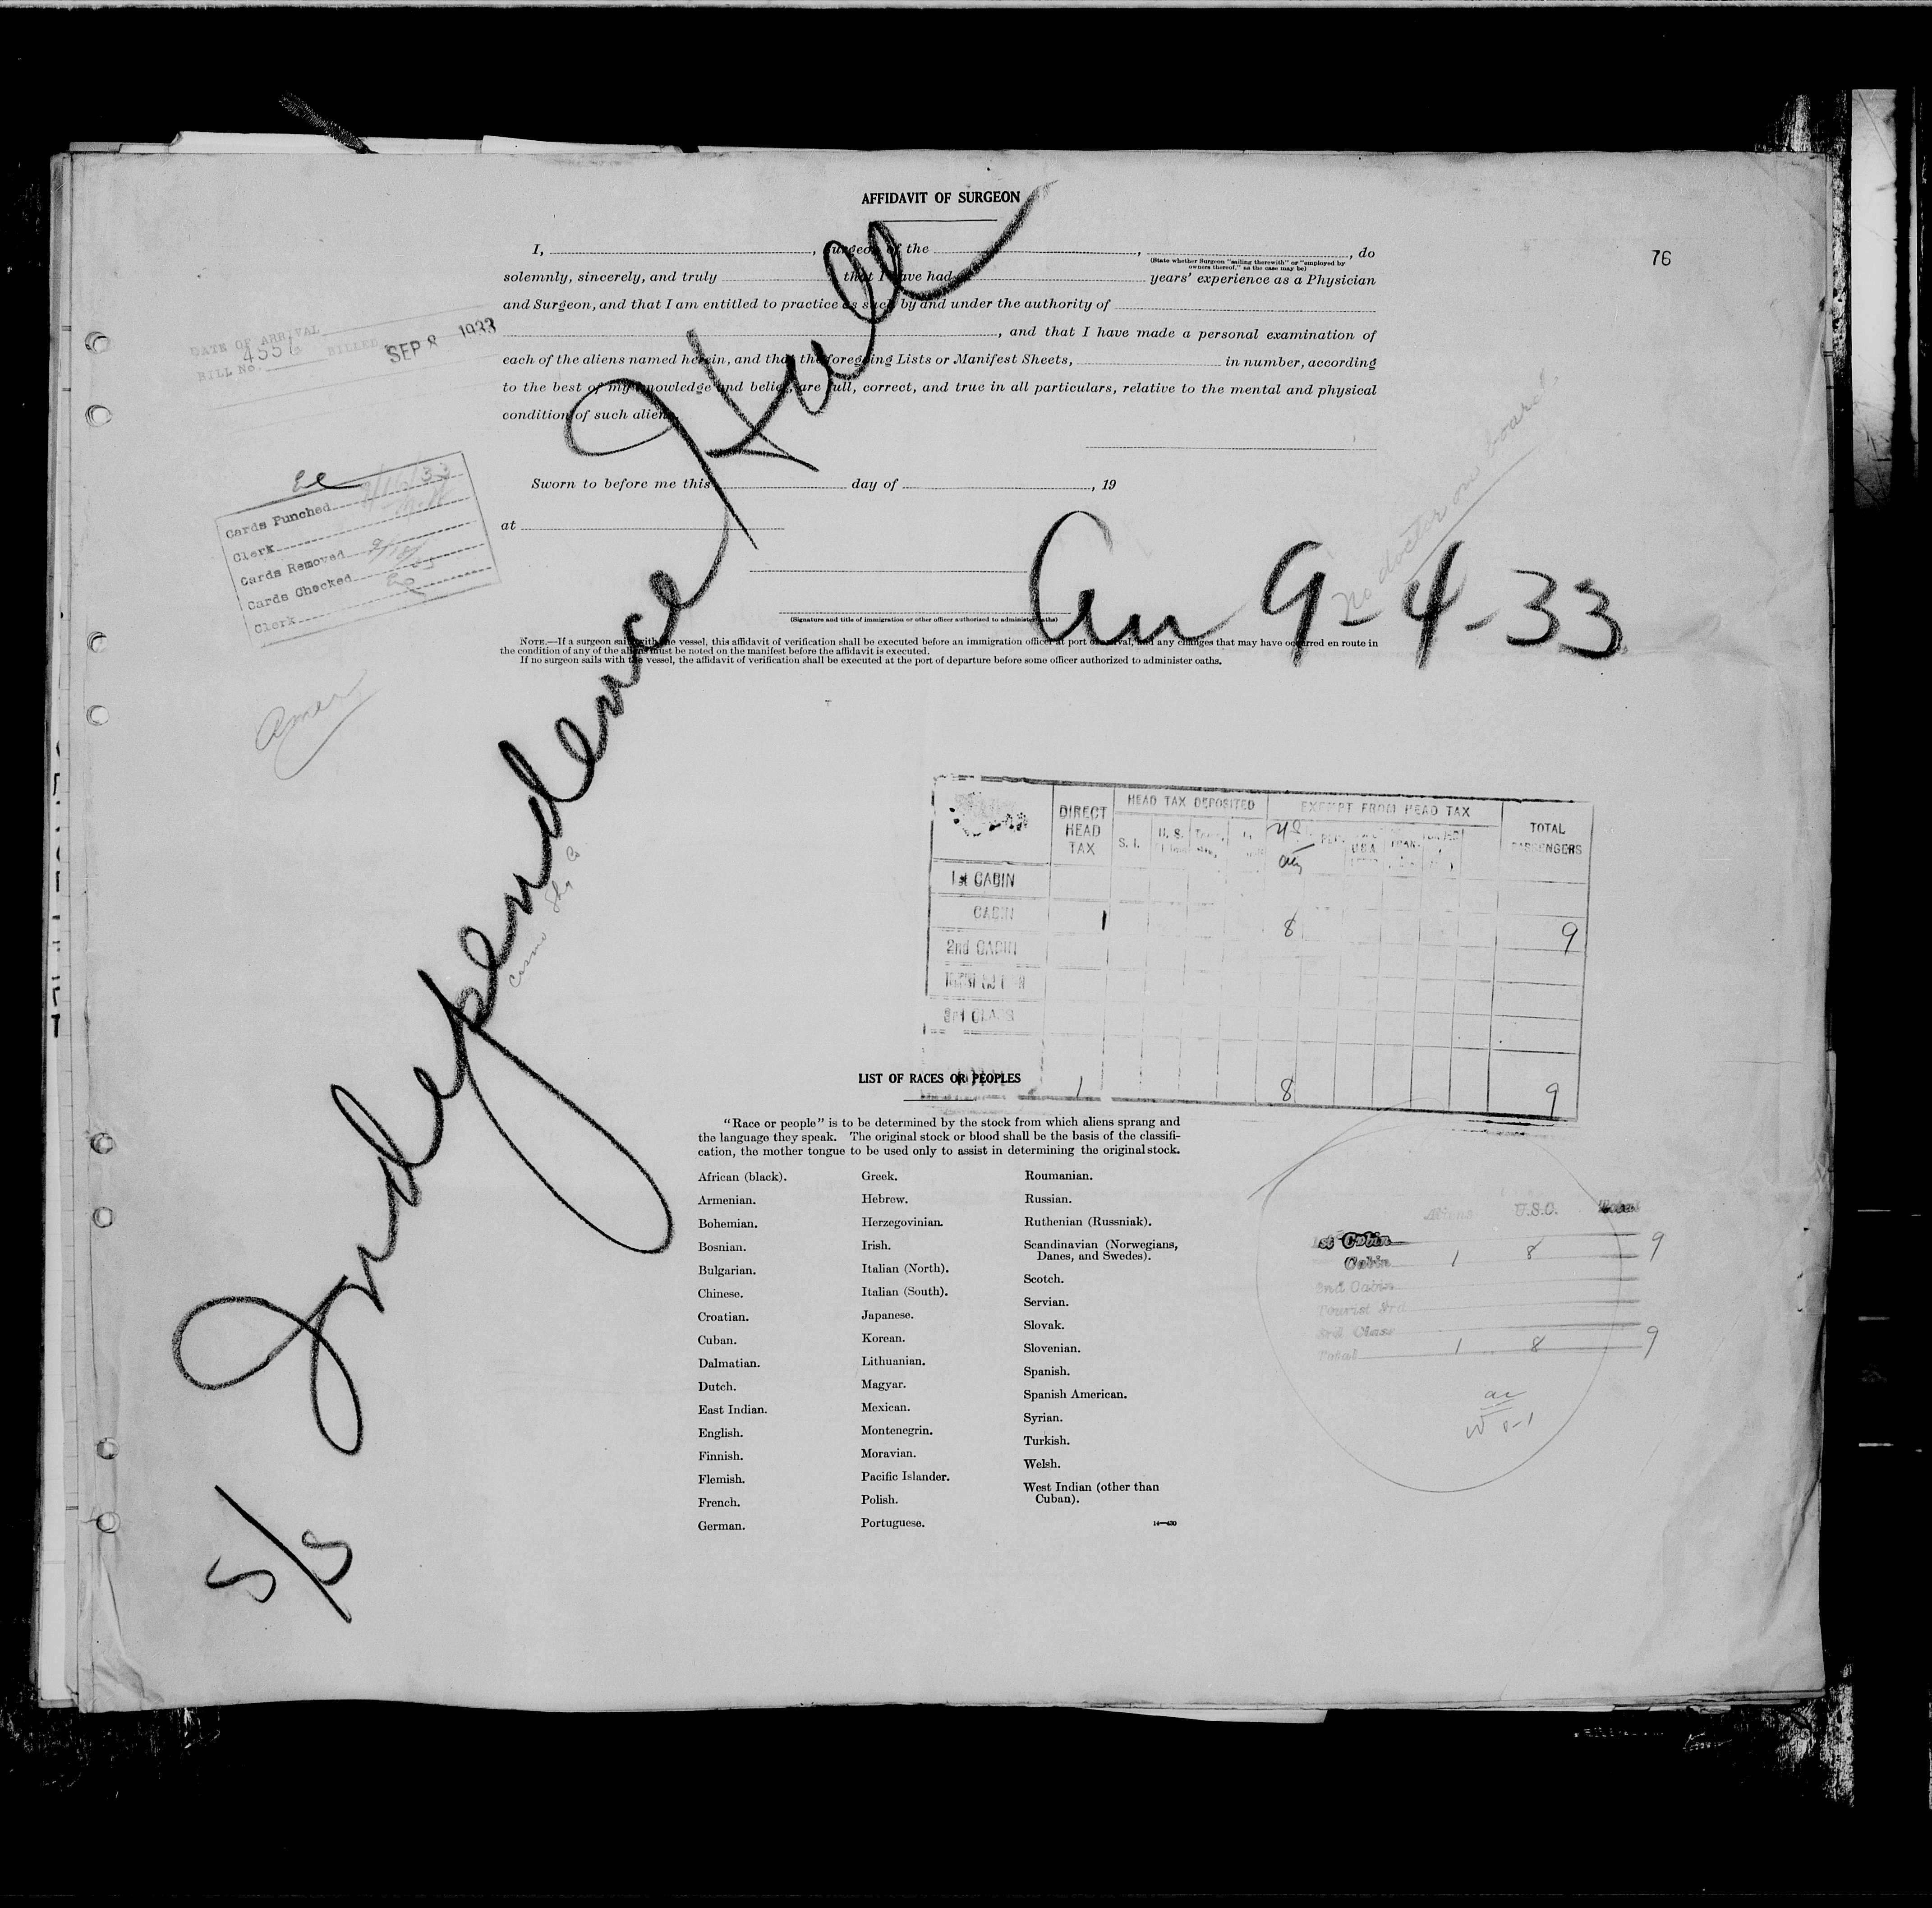 AFFIDAVIT OF SURGEON
I, , surgeon of the , , do
(State whether Surgeon "sailing therewith" or "employed by
owners thereof," as the case may be)
solemnly, sincerely, and truly that I have had years' experience as a Physician
and Surgeon, and that I am entitled to practice as such by and under the authority of
, and that I have made a personal examination of
each of the aliens named herein, and that the foregoing Lists or Manifest Sheets, in number, according
to the best of my knowledge and belief, are full, correct, and true in all particulars, relative to the mental and physical
condition of such aliens.
Sworn to before me this day of , 19
at
(Signature and title of immigration or other officer authorized to administer oaths)
NOTE.—If a surgeon sails with the vessel, this affidavit of verification shall be executed before an immigration officer at port of arrival, and any changes that may have occurred en route in
the condition of any of the aliens must be noted on the manifest before the affidavit is executed.
If no surgeon sails with the vessel, the affidavit of verification shall be executed at the port of departure before some officer authorized to administer oaths.
76
DATE OF ARRIVAL
BILL No. BILLED SEP 8 1933
Cards Punched
Clerk
Cards Removed
Cards Checked
Clerk
Amer
S/S Independence Hall
no doctor on board
Arr 9-4-33
DIRECT HEAD TAX
HEAD TAX DEPOSITED
EXEMPT FROM HEAD TAX
TOTAL PASSENGERS
S. I. U. S.
1st CABIN
CABIN 1 8 9
2nd CABIN
3rd CLASS
1 8 9
LIST OF RACES OR PEOPLES
"Race or people" is to be determined by the stock from which aliens sprang and
the language they speak. The original stock or blood shall be the basis of the classifi-
cation, the mother tongue to be used only to assist in determining the original stock.
African (black).
Armenian.
Bohemian.
Bosnian.
Bulgarian.
Chinese.
Croatian.
Cuban.
Dalmatian.
Dutch.
East Indian.
English.
Finnish.
Flemish.
French.
German.
Greek.
Hebrew.
Herzegovinian.
Irish.
Italian (North).
Italian (South).
Japanese.
Korean.
Lithuanian.
Magyar.
Mexican.
Montenegrin.
Moravian.
Pacific Islander.
Polish.
Portuguese.
Roumanian.
Russian.
Ruthenian (Russniak).
Scandinavian (Norwegians,
Danes, and Swedes).
Scotch.
Servian.
Slovak.
Slovenian.
Spanish.
Spanish American.
Syrian.
Turkish.
Welsh.
West Indian (other than
Cuban).
14—430
Aliens U.S.C. Total
1st Cabin
Cabin 1 8 9
2nd Cabin
Tourist 3rd
3rd Class
Total 1 8 9